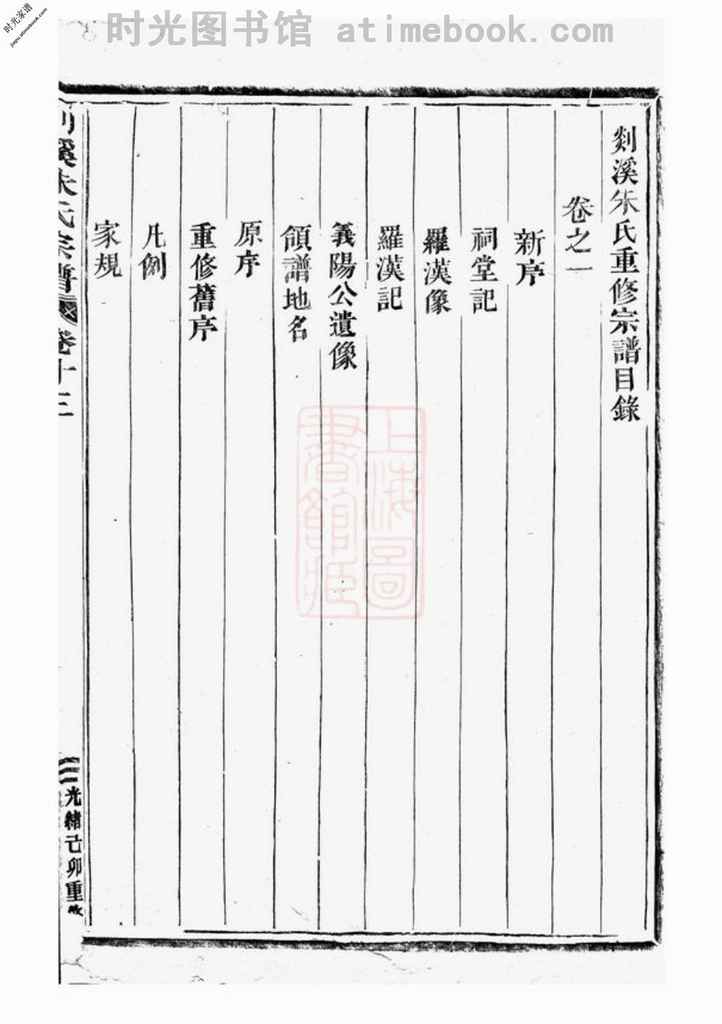 时光图书馆 atimebook.com
时光家谱
剡溪朱氏重修宗譜目錄
卷之一
新序
祠堂記
羅漢像
羅漢記
義陽公遺像
領譜地名
原序
重修舊序
凡例
家規
剡溪朱氏宗譜 卷十三
光緒己卯重
上海圖書館